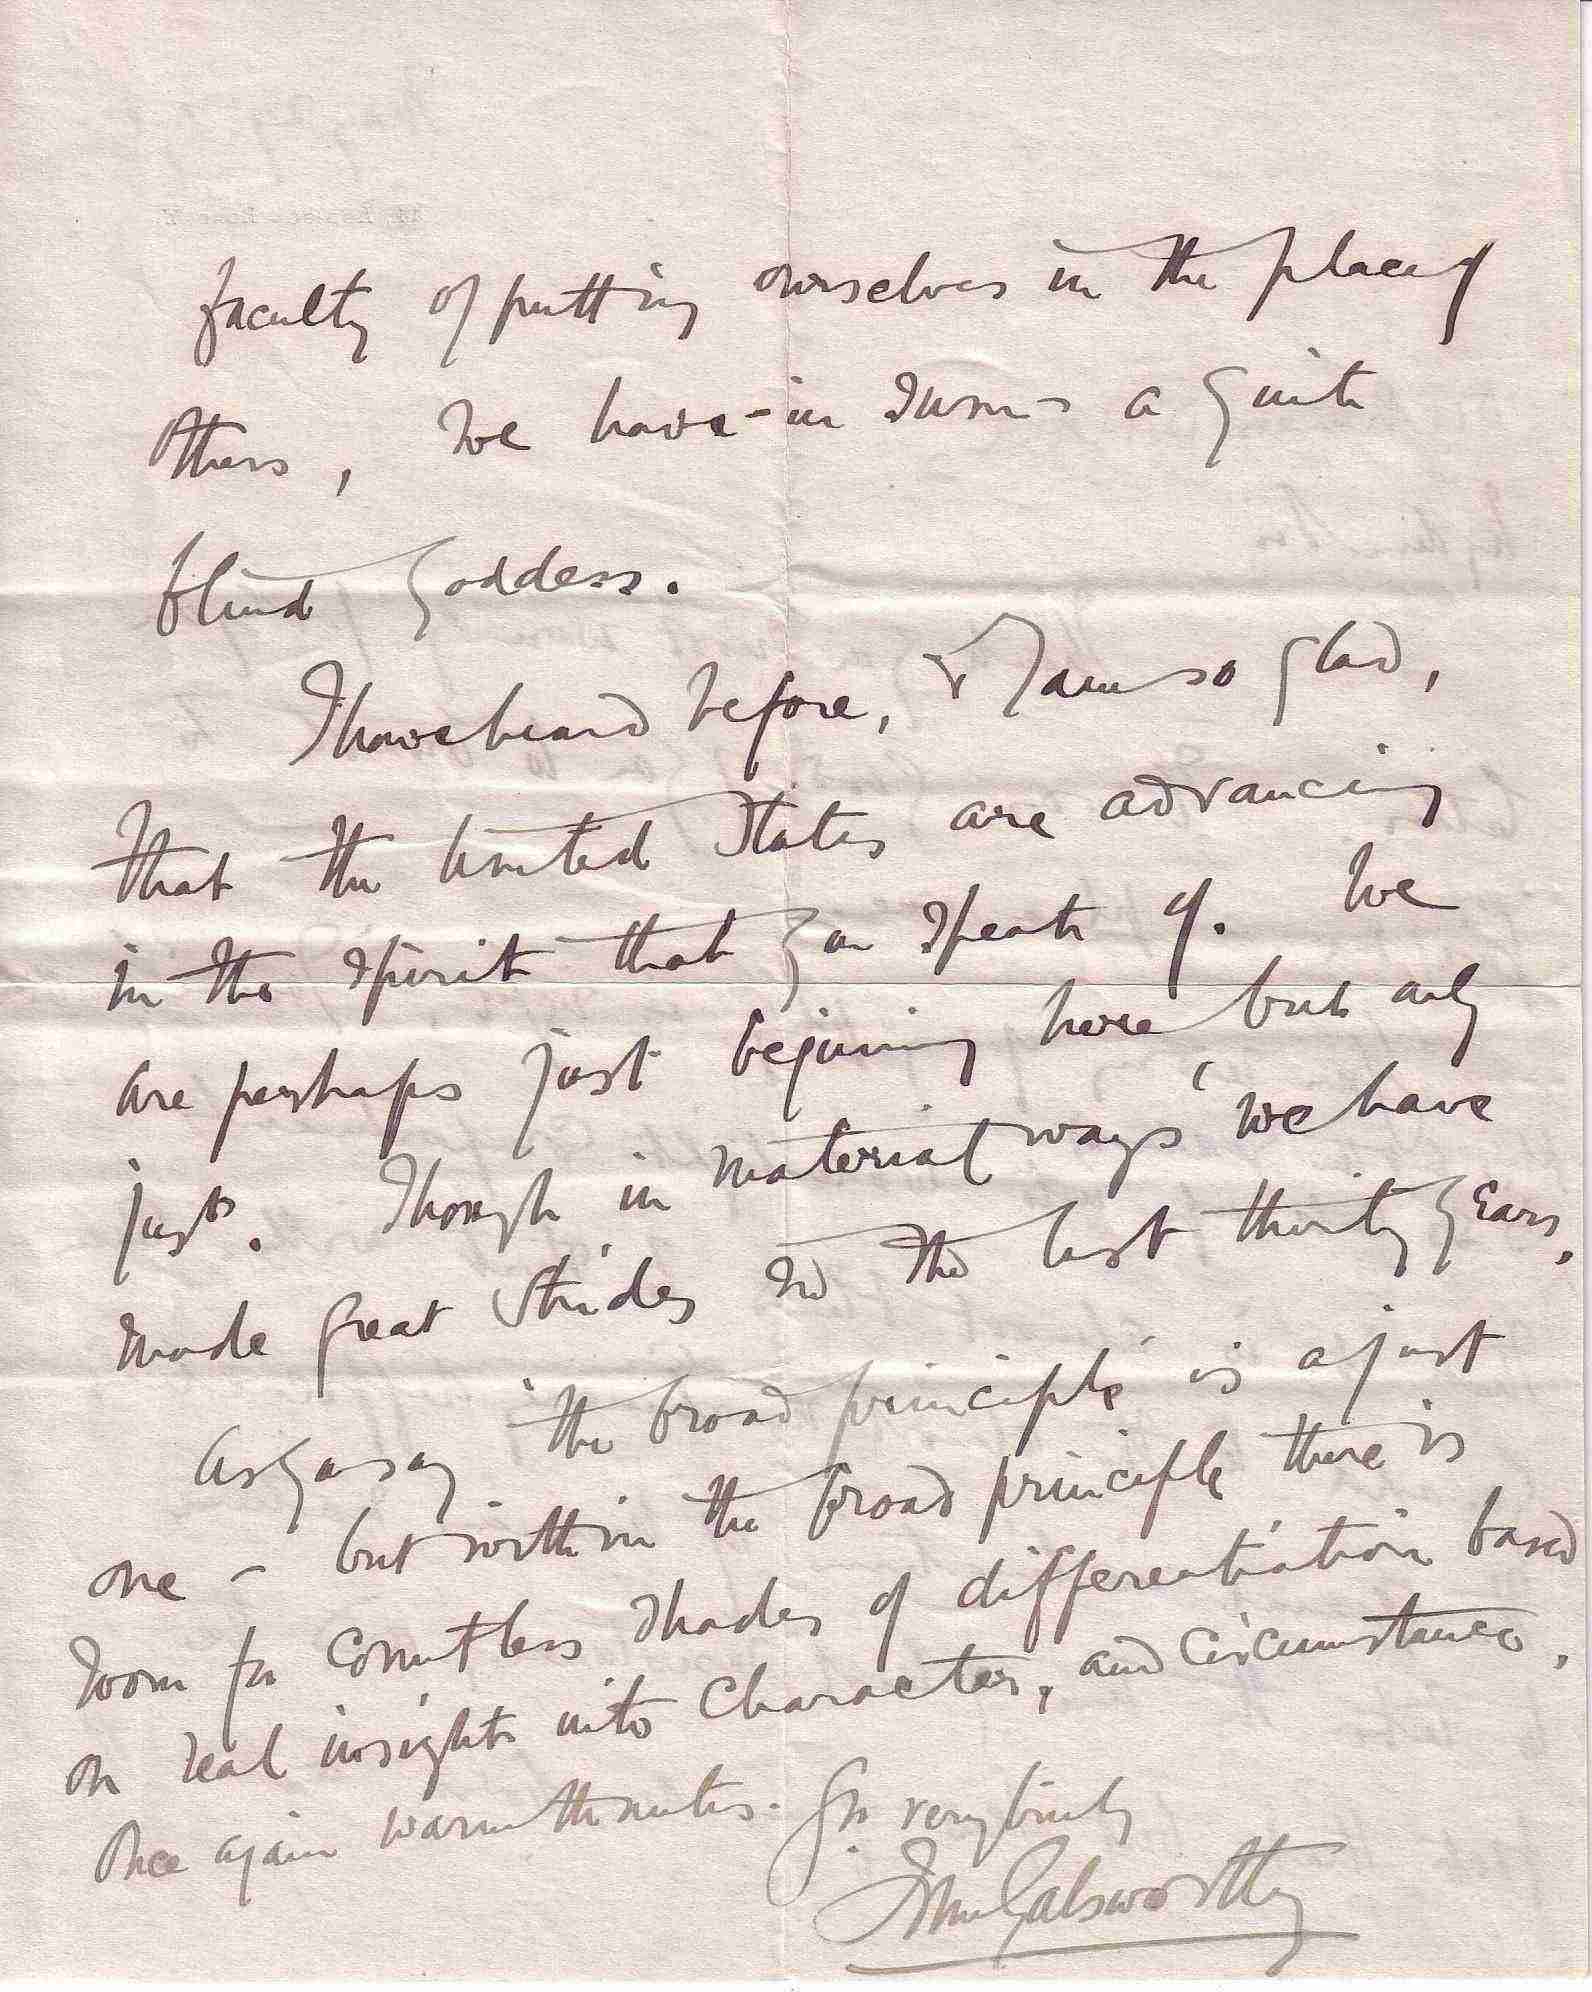 faculty of putting ourselves in the place of
others, we have - in sum - a quite
blind Goddess.
I have heard before, & I am so glad,
that the United States are advancing
in the spirit that you speak of. We
are perhaps just beginning here, but only
just. Though in material ways we have
made great strides in the last thirty years.
As you say the broad principle is a just
one - but within the broad principle there is
room for countless shades of differentiation based
on real insight into character, and circumstance.
Once again warm thanks. Yrs very truly
John Galsworthy